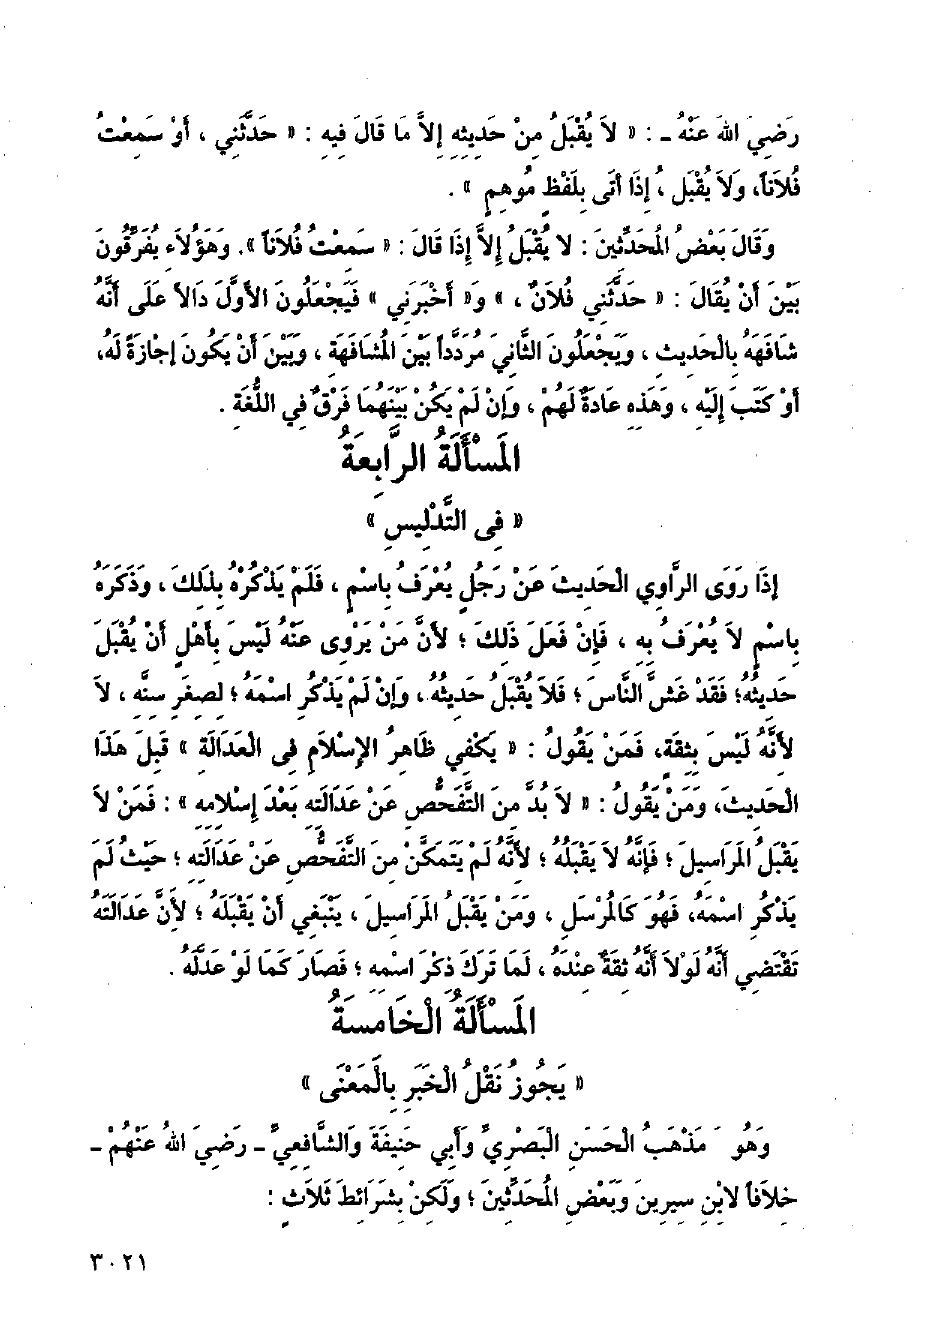 رَضِيَ اللهُ عَنْهُ ـ : « لاَ يُقْبَلُ مِنْ حَدِيثِهِ إِلاَّ مَا قَالَ فِيهِ : « حَدَّثَنِي ، أَوْ سَمِعْتُ
فُلاَناً، وَلاَ يُقْبَل ، إِذَا أَتَى بِلَفْظٍ مُوهِمٍ » .
وَقَالَ بَعْضُ المُحَدِّثِينَ : لا يُقْبَلُ إِلاَّ إِذَا قَالَ : « سَمِعْتُ فُلاَناً ». وَهَؤُلاَءِ يُفَرِّقُونَ
بَيْنَ أَنْ يُقَالَ : « حَدَّثَنِي فُلاَنٌ ، » وَ« أَخْبَرَنِي » فَيَجْعَلُونَ الأَوَّلَ دَالاً عَلَى أَنَّهُ
شَافَهَهُ بِالْحَدِيثِ ، وَيَجْعَلُونَ الثَّانِيَ مُرَدَّداً بَيْنَ المُشَافَهَةِ ، وَبَيْنَ أَنْ يَكُونَ إِجَازَةً لَهُ،
أَوْ كَتَبَ إِلَيْهِ ، وَهَذِهِ عَادَةٌ لَهُمْ ، وَإِنْ لَمْ يَكُنْ بَيْنَهُمَا فَرْقٌ فِي اللُّغَةِ .
المَسْأَلَةُ الرَّابِعَةُ
« فِى التَّدْلِيسِ »
إِذَا رَوَى الرَّاوِي الْحَدِيثَ عَنْ رَجُلٍ يُعْرَفُ بِاسْمٍ ، فَلَمْ يَذْكُرْهُ بِذَلِكَ ، وَذَكَرَهُ
بِاسْمٍ لاَ يُعْرَفُ بِهِ ، فَإِنْ فَعَلَ ذَلِكَ ؛ لأَنَّ مَنْ يَرْوِى عَنْهُ لَيْسَ بِأَهْلٍ أَنْ يُقْبَلَ
حَدِيثُهُ؛ فَقَدْ غَشَّ النَّاسَ ؛ فَلاَ يُقْبَلُ حَدِيثُهُ ، وَإِنْ لَمْ يَذْكُرِ اسْمَهُ ؛ لِصِغَرِ سِنِّهِ ، لاَ
لأَنَّهُ لَيْسَ بِثِقَةٍ، فَمَنْ يَقُولُ : « يَكْفِي ظَاهِرُ الإِسْلاَمِ فِى الْعَدَالَةِ » قَبِلَ هَذَا
الْحَدِيثَ، وَمَنْ يَقُولُ : « لاَ بُدَّ مِنَ التَّفَحُّصِ عَنْ عَدَالَتِهِ بَعْدَ إِسْلاَمِهِ » : فَمَنْ لاَ
يَقْبَلُ المَرَاسِيلَ ؛ فَإِنَّهُ لاَ يَقْبَلُهُ ؛ لأَنَّهُ لَمْ يَتَمَكَّنْ مِنَ التَّفَحُّصِ عَنْ عَدَالَتِهِ ؛ حَيْثُ لَمْ
يَذْكُرِ اسْمَهُ، فَهُوَ كَالمُرْسَلِ ، وَمَنْ يَقْبَلُ المَرَاسِيلَ ، يَنْبَغِي أَنْ يَقْبَلَهُ ؛ لأَنَّ عَدَالَتَهُ
تَقْتَضِي أَنَّهُ لَوْلاَ أَنَّهُ ثِقَةٌ عِنْدَهُ ، لَمَا تَرَكَ ذِكْرَ اسْمِهِ ؛ فَصَارَ كَمَا لَوْ عَدَّلَهُ .
المَسْأَلَةُ الْخَامِسَةُ
« يَجُوزُ نَقْلُ الْخَبَرِ بِالْمَعْنَى »
وَهُوَ مَذْهَبُ الْحَسَنِ الْبَصْرِيِّ وَأَبِي حَنِيفَةَ وَالشَّافِعِيِّ ـ رَضِيَ اللهُ عَنْهُمْ ـ
خِلاَفاً لابْنِ سِيرِينَ وَبَعْضِ المُحَدِّثِينَ ؛ وَلَكِنْ بِشَرَائِطَ ثَلاَثٍ :
٣٠٢١